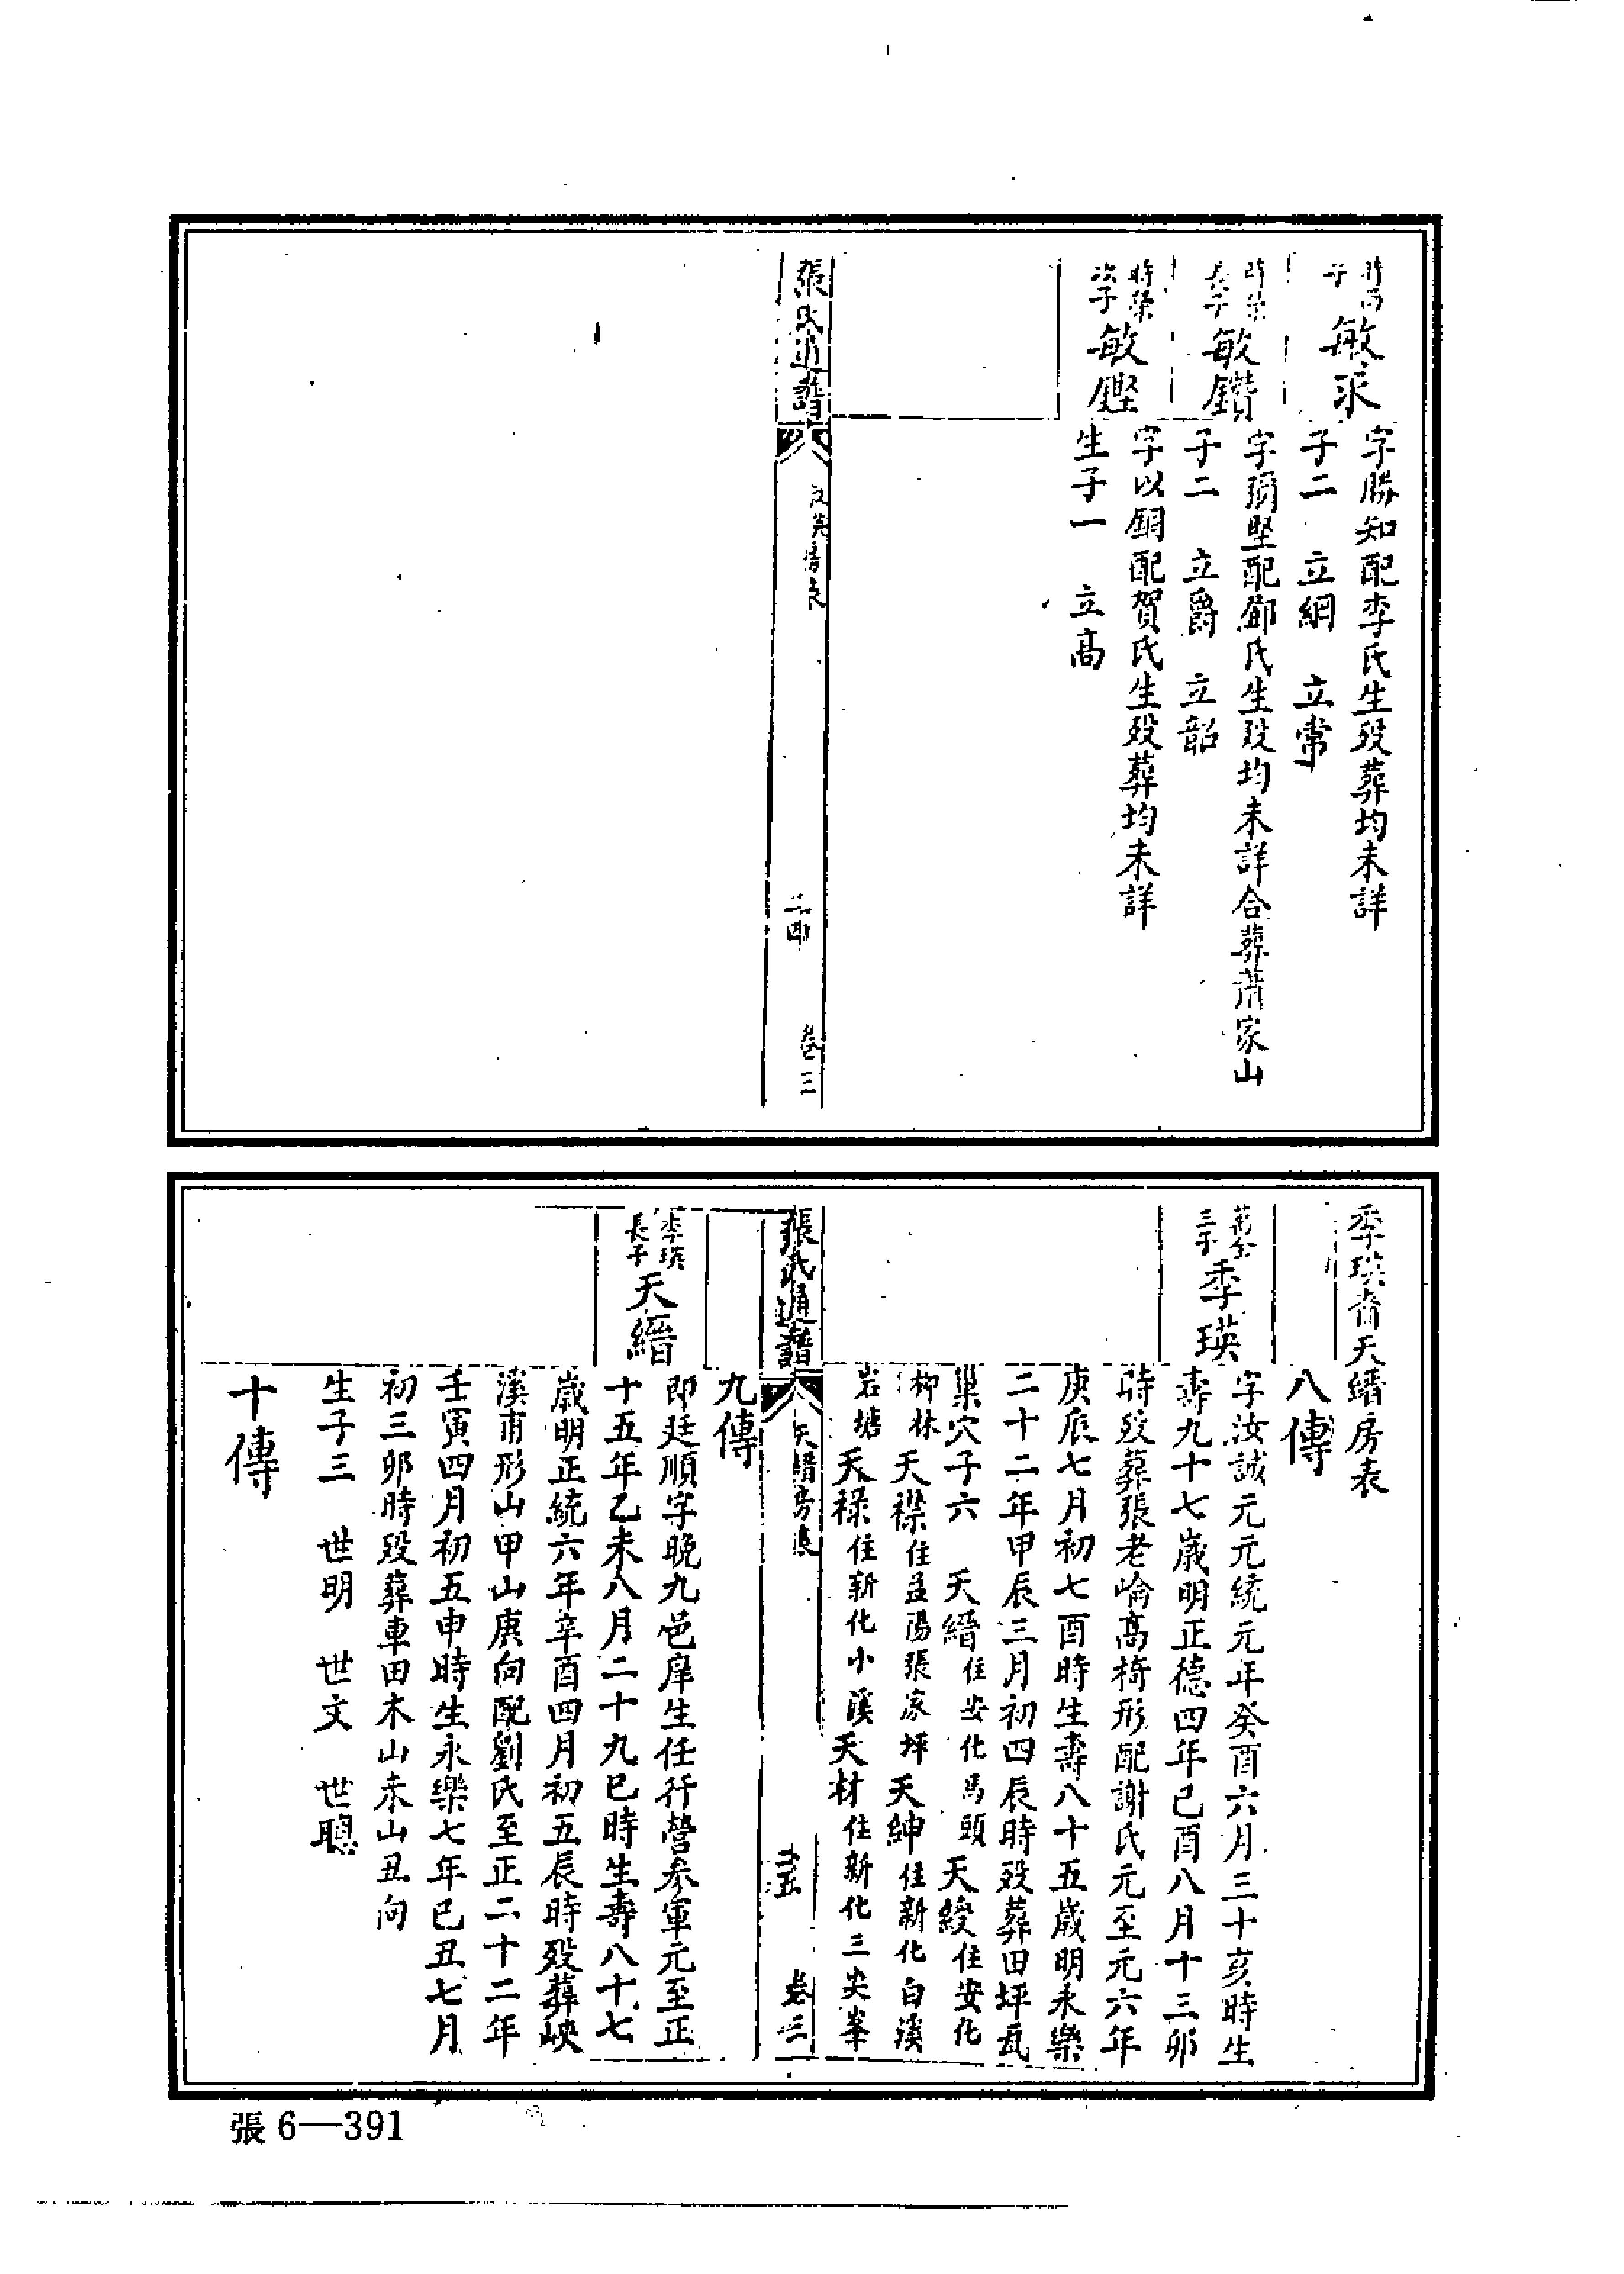 敏求
字勝知配李氏生歿葬均未詳
子二 立綱 立常
長子
敏鑽
字彌堅配鄧氏生歿均未詳合葬蕭家山
子二 立爵 立韶
時榮
次子
敏鏗
字以銅配賀氏生歿葬均未詳
生子一 立高
張氏通譜
房表
二四
卷三
季瑛裔天縉房表
八傳
三子
季瑛
字汝誠元元統元年癸酉六月三十亥時生
壽九十七歲明正德四年己酉八月十三卯
時歿葬張老崙高椅形配謝氏元至元六年
庚辰七月初七酉時生壽八十五歲明永樂
二十二年甲辰三月初四辰時歿葬田坪瓦
巢穴子六 天縉住安化馬頭 天綬住安化
柳林 天襟住益陽張家坪 天紳住新化白溪
岩塘 天祿住新化小溪 天材住新化三尖峯
張氏通譜
天縉房表
二五
卷三
九傳
季瑛
長子
天縉
即廷順字晚九邑庠生任行營參軍元至正
十五年乙未八月二十九巳時生壽八十七
歲明正統六年辛酉四月初五辰時歿葬峽
溪甫形山甲山庚向配劉氏至正二十二年
壬寅四月初五申時生永樂七年己丑七月
初三卯時歿葬車田木山未山丑向
生子三 世明 世文 世聰
十傳
張 6—391